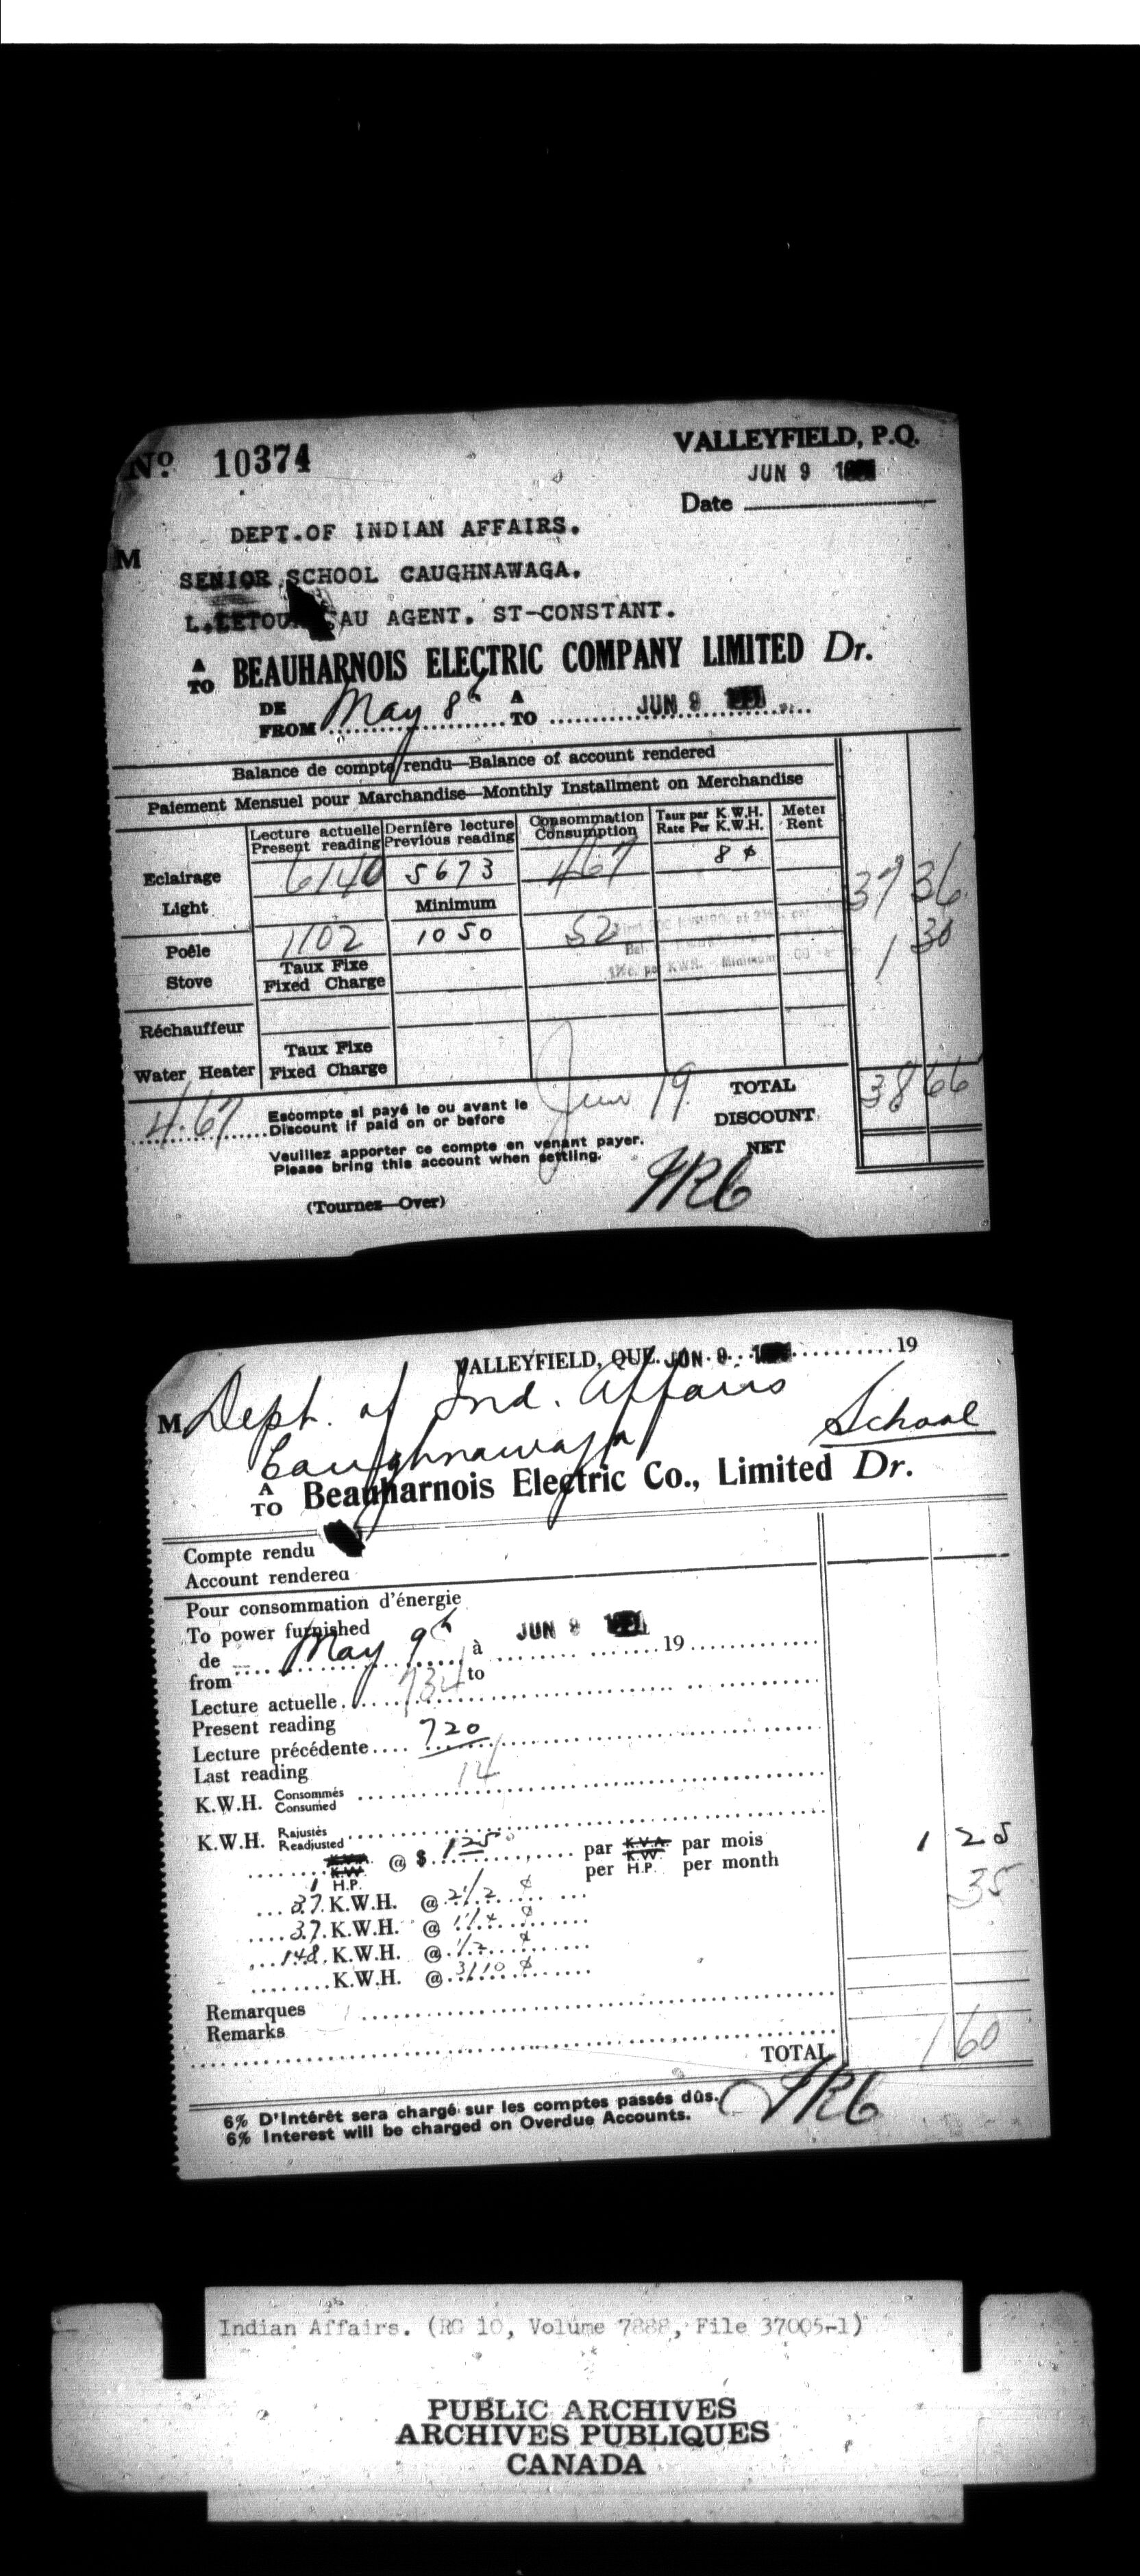 No 10374
VALLEYFIELD, P.Q.
JUN 9
Date
M
DEPT.OF INDIAN AFFAIRS.
SENIOR SCHOOL CAUGHNAWAGA.
AU AGENT. ST-CONSTANT.
A
TO BEAUHARNOIS ELECTRIC COMPANY LIMITED Dr.
DE
FROM May 8th A
TO JUN 9
Balance de compte rendu—Balance of account rendered
Paiement Mensuel pour Marchandise—Monthly Installment on Merchandise
Lecture actuelle Dernière lecture Consommation Taux par K.W.H. Meter
Present reading Previous reading Consumption Rate Per K.W.H. Rent
Eclairage 6140 5673 467 8 ¢ 37 36
Light Minimum
Poêle 1102 1050 52 1 30
Stove Taux Fixe
Fixed Charge
Réchauffeur
Taux Fixe
Water Heater Fixed Charge
4.67 Escompte si payé le ou avant le
Discount if paid on or before June 19. TOTAL 38 66
DISCOUNT
Veuillez apporter ce compte en venant payer.
Please bring this account when settling.
NET
(Tournez—Over)
VALLEYFIELD, QUE. JUN 9 19
M Dept. of Ind. Affairs
Caughnawaga School
A
TO Beauharnois Electric Co., Limited Dr.
Compte rendu
Account rendered
Pour consommation d'énergie
To power furnished
de May 9th à JUN 19
from to
Lecture actuelle 734
Present reading
Lecture précédente 720
Last reading
14
K.W.H. Consommés
Consumed
K.W.H. Rajustés
Readjusted
K.V.A.
K.W.
1 H.P. @ $ 125 par K.V.A. par mois
per K.W. H.P. per month 1 25
37 K.W.H. @ 2 1/2 ¢ 35
37 K.W.H. @ 1 1/4 ¢
148 K.W.H. @ 1/2 ¢
K.W.H. @ 3/10 ¢
Remarques
Remarks
TOTAL 1 60
6% D'Intérêt sera chargé sur les comptes passés dûs.
6% Interest will be charged on Overdue Accounts.
Indian Affairs. (RG 10, Volume 7888, File 37005-1)
PUBLIC ARCHIVES
ARCHIVES PUBLIQUES
CANADA